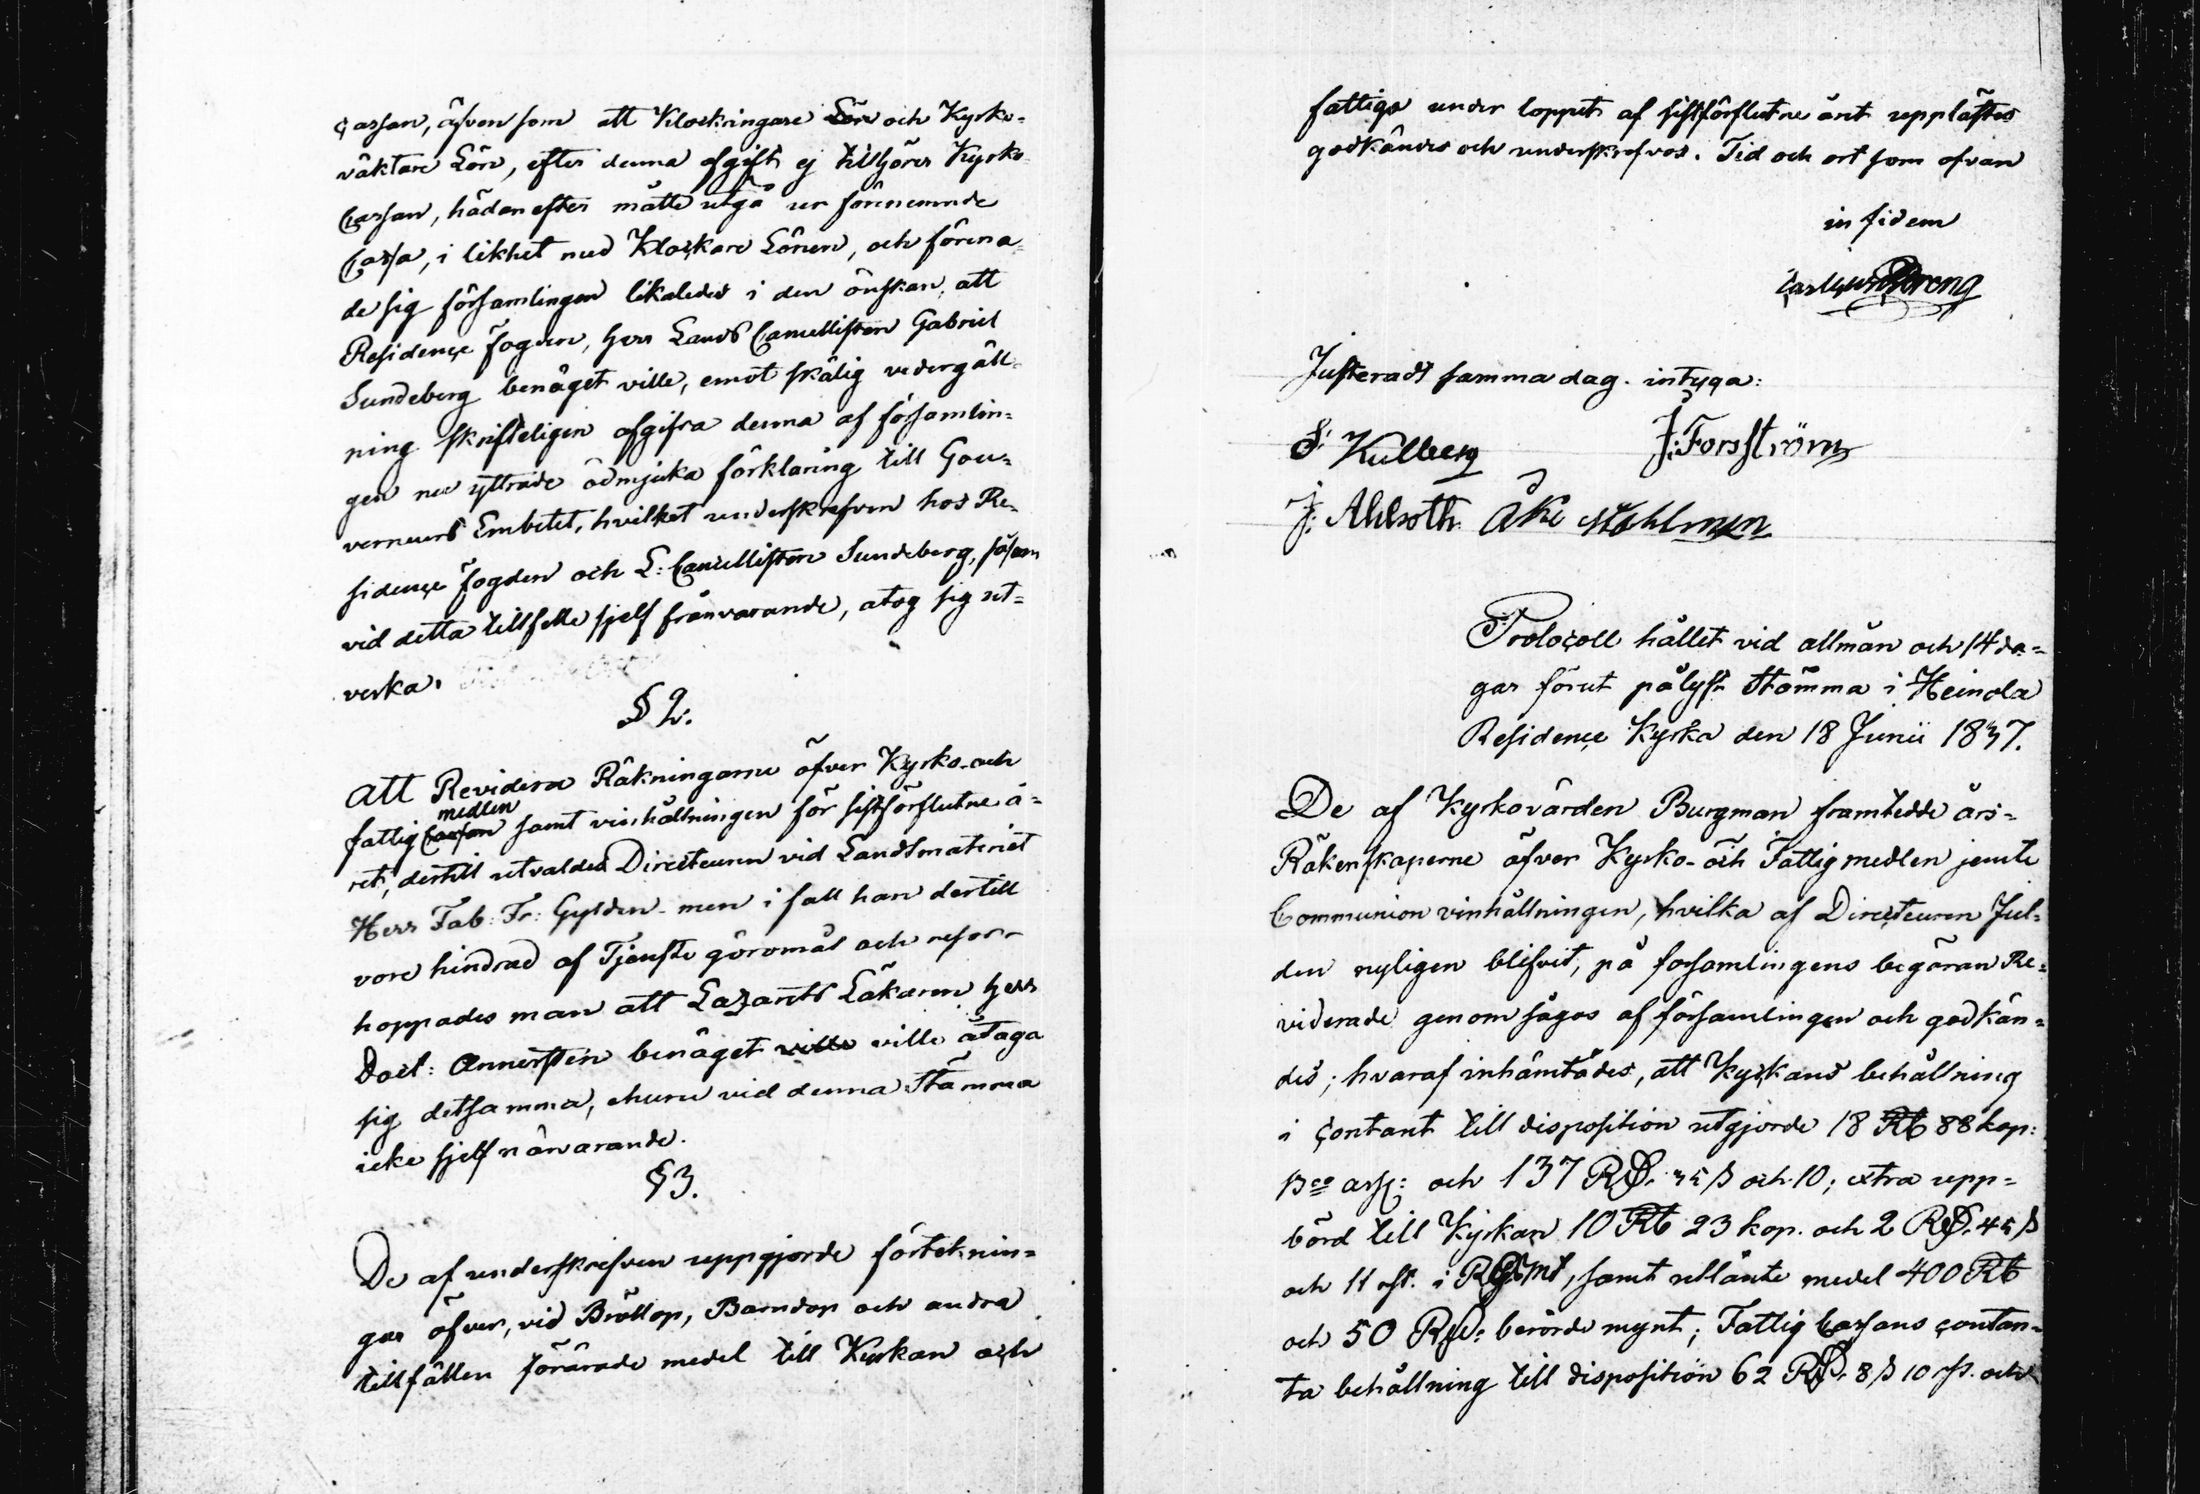 Cassan, äfvensom att Klockringare Lön och Kyrko-
väktare Lön, efter denna afgift ej tillhörer Kyrko
Cassan, hädanefter måtte utgå ur förenemnde
Cassa, i likhet med Klockare Lönen, och förena-
de sig församlingen likaledes i den önskan, att
Residence Fogden, herr Lands Cancellisten Gabriel
Sundeberg benäget ville, emot skälig vedergäll-
ning skrifteligen afgifva denna af församlin-
gen nu yttrade ödmjuka förklaring till Gou-
verneurs Embetet, hvilket underskrefven hos Re-
sidence Fogden och L: Cancellisten Sundeberg, såsom
vid detta tillfelle sjelf frånvarande, atog sig ut-
verka.
§ 2.
Att Revidera Räkningarne öfver Kyrko- och
medlen
fattig Cassan samt vinhållningen för sistförflutne å-
ret, dertill utvaldes Directeuren vid Landtmäteriet
Herr Fab: Fr: Gyldén men i fall han dertill
vore hindrad af Tjenste göromål och resor
hoppades man att Lazarets Läkaren herr
Doct: Annerstén benäget ville ville åtaga
sig detsamma, ehuru vid denna Stämma
icke sjelf närvarande.
§ 3.
De af underskrefven uppgjorde förteknin-
gar öfver, vid Bröllop, Barndop och andra
tillfällen förärade medel till Kyrkan och
fattiga under loppet af sistförflutne året upplästes
godkändes och underskrefvos. Tid och ort som ofvan
in fidem
Justeradt samma dag. intyga:
S: Kulberg J: Forsström
J: Ahlroth Åke Mahlmen
Protocoll hållet vid allmän och 14 da-
gar förut pålyst Stämma i Heinola
Residence Kyrka den 18 Junii 1837.
De af Kyrkovärden Burgman framtedde års-
Räkenskaperne öfver Kyrko- och Fattigmedlen jemte
Communion vinhållningen, hvilka af Directeuren Jul-
den nyligen blifvit, på församlingens begäran Re-
viderade genomsågos af församlingen och godkän-
des; hvaraf inhämtades, att Kyrkans behållning
i contant till disposition utgjorde 18 Rb 88 kop:
Bco ass: och 137 RD. 35 ß och 10; extra upp-
börd till Kyrkan 10 Rb 23 kop. och 2 RD. 45 ß
och 11 rst. i RGsmt, samt utlänte medel 400 Rb
och 50 RD: berörde mynt; Fattig Cassans contan-
ta behållning till disposition 62 RD. 8 ß 10 rst. och